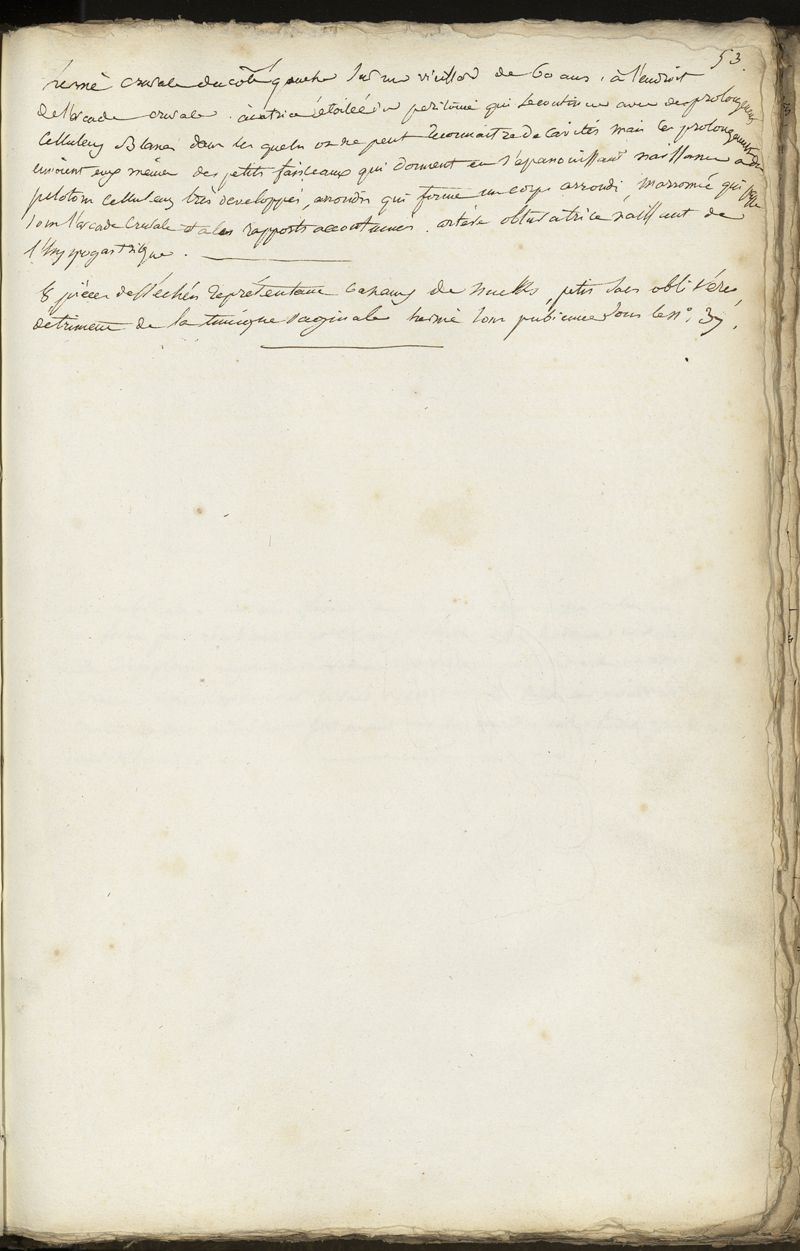 53.
hernie crurale du côté gauche sur un vieillard de 60 ans. à l'endroit
de l'arcade crurale. cicatrice étoilée du peritoine qui se continue avec des prolongemens
celluleux blancs dans les quels on ne peut reconnaitre de cavités mais les prolongements
eux même des petits faisceaux qui donnent en s'epanouissant naissance à un
peloton celluleux très developpés, arrondis qui forme un corps arrondi, marroné qui
sous l'arcade crurale et a les rapports accoutumés. artère obturatrice naissant de
l'hypogastrique.
8 pièces desséchées représentant canaux de nuck, petits sacs oblitéré,
de la tunique vaginale hernie sous pubienne sous le n° 37.